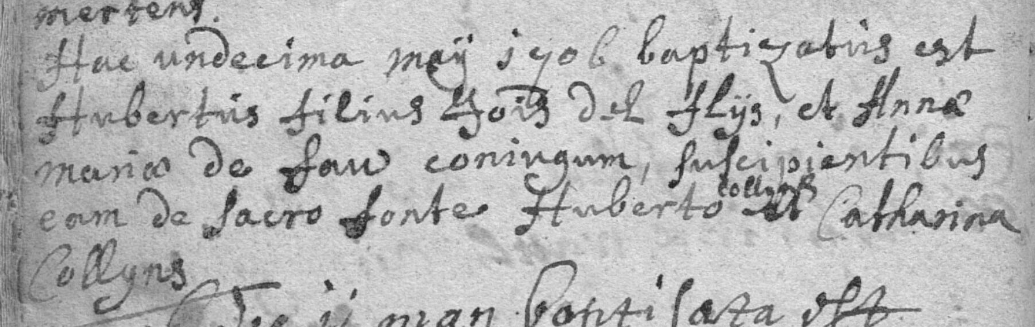 mertens.
Hac undecima maÿ 1706 baptizatus est
Hubertus filius Jois del flÿs, et Annæ
mariæ de fau coniugum, suscipientibus
eam de sacro fonte Huberto collyns et Catharina
Collyns
baptisata est